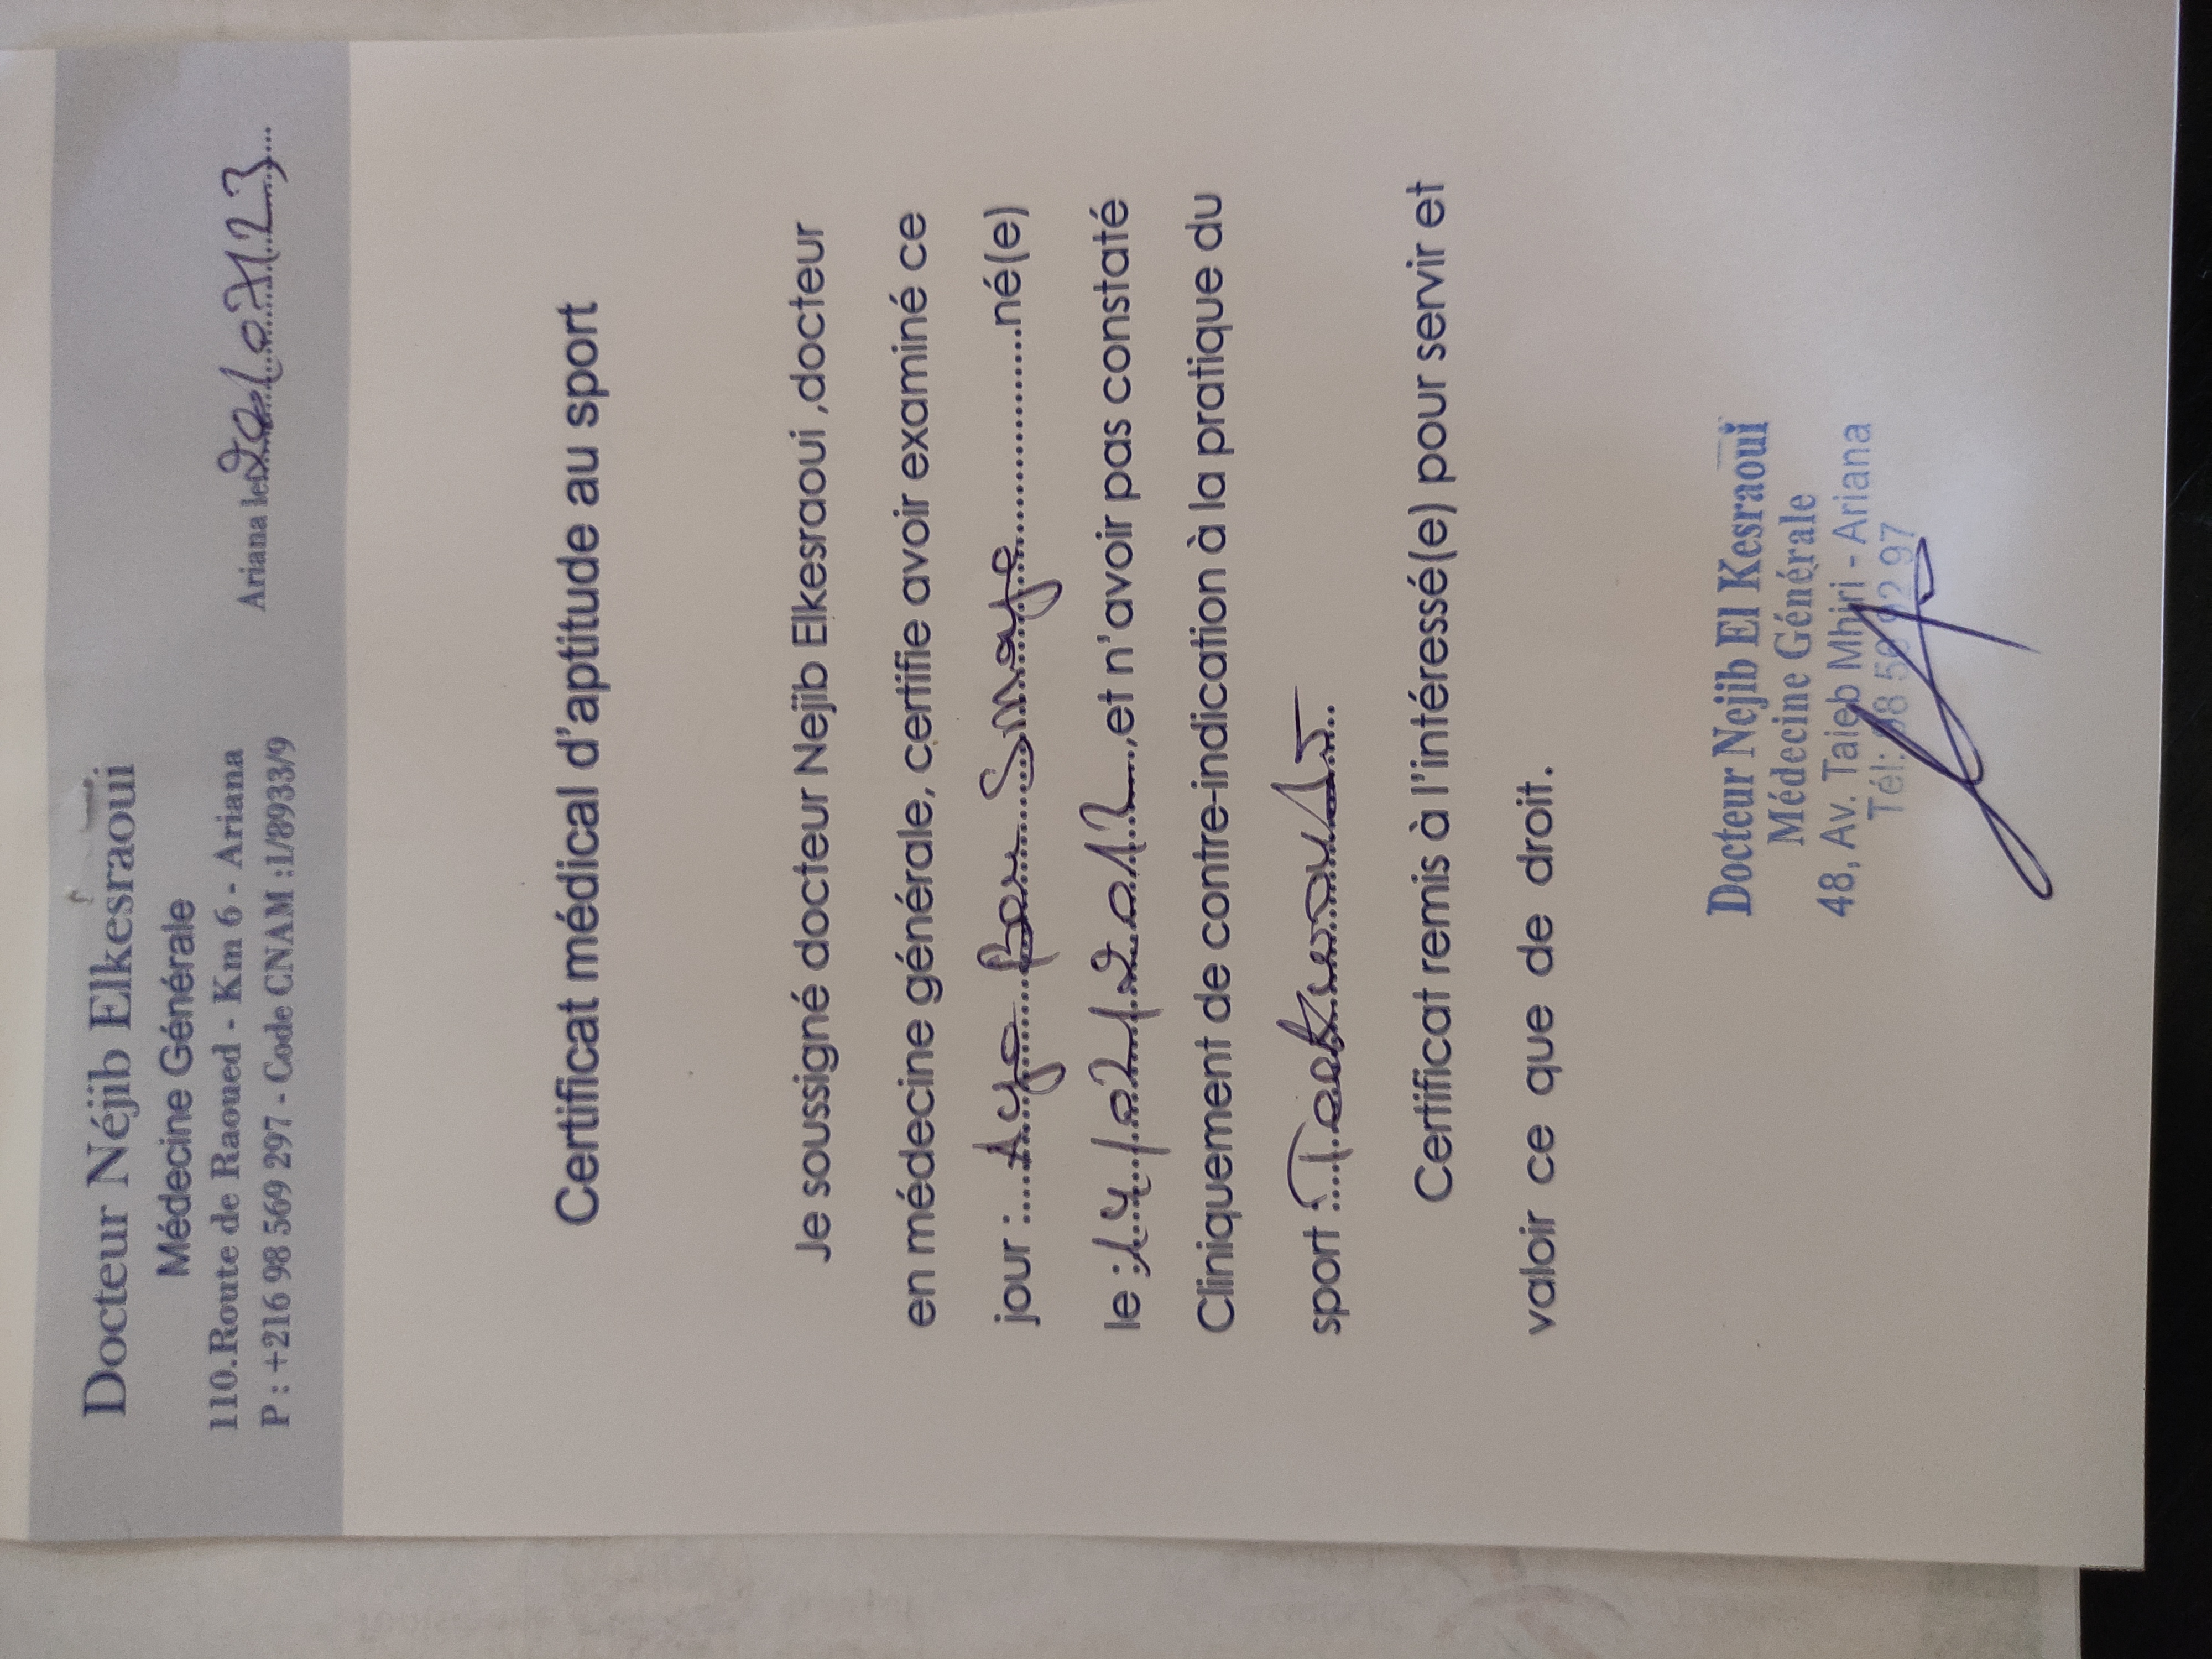 Docteur Néjib Elkesraoui
Médecine Générale
110.Route de Raoued - Km 6 - Ariana
P : +216 98 569 297 - Code CNAM :1/8933/9
Ariana le 20/07/23
Certificat médical d'aptitude au sport
Je soussigné docteur Nejib Elkesraoui ,docteur
en médecine générale, certifie avoir examiné ce
jour : Aya Ben Smaya né(e)
le : 14/02/2012, et n'avoir pas constaté
Cliniquement de contre-indication à la pratique du
sport : Taekwondo
Certificat remis à l'intéressé(e) pour servir et
valoir ce que de droit.
Docteur Nejib El Kesraoui
Médecine Générale
48, Av. Taieb Mhiri - Ariana
Tél: 98 56 92 97